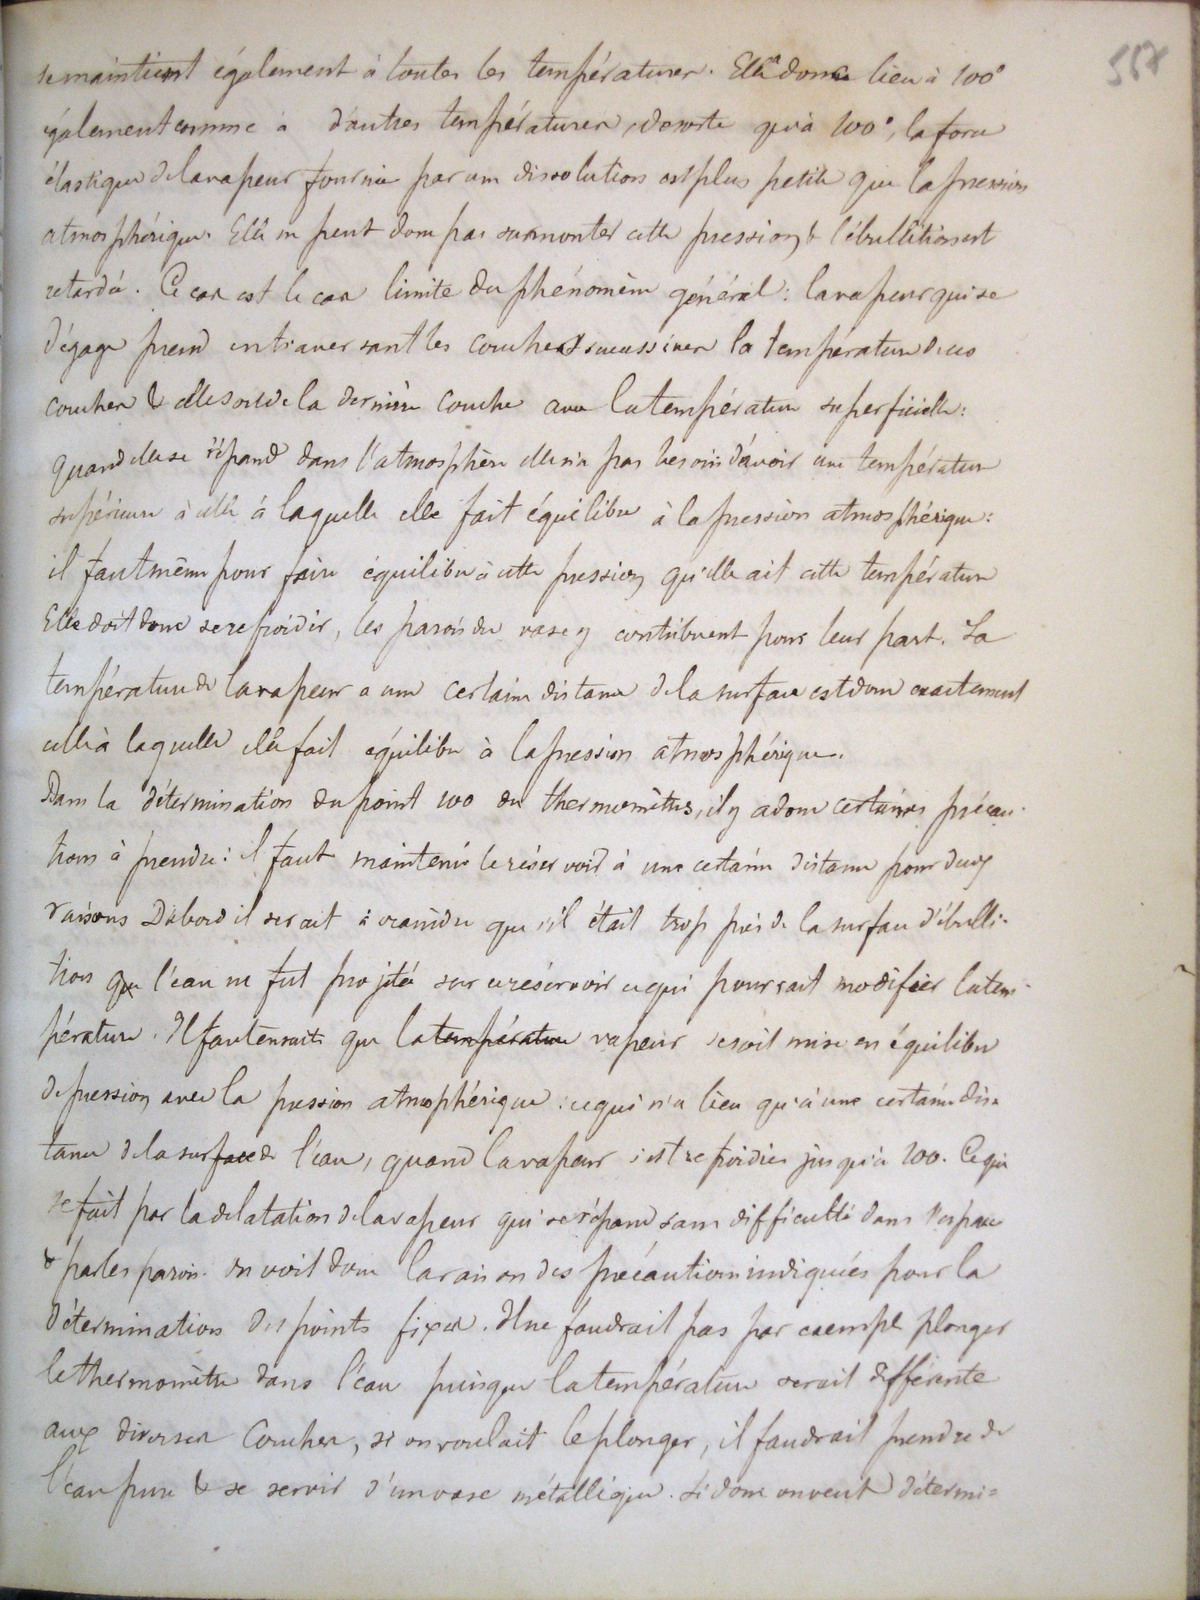 557
se maintient également à toutes les températures. Elle a donc lieu à 100°
également comme à d'autres températures, de sorte qu'à 100°, la force
élastique de la vapeur fournie par une dissolution est plus petite que la pression
atmosphérique. Elle ne peut donc pas surmonter cette pression & l'ébullition est
retardée. Ce cas est le cas limite du phénomène général : la vapeur qui se
dégage prend en traversant les couches successives la température de ces
couches & elle sort de la dernière couche avec la température superficielle :
Quand elle se répand dans l'atmosphère elle n'a pas besoin d'avoir une température
supérieure à celle à laquelle elle fait équilibre à la pression atmosphérique :
il faut même pour faire équilibre à cette pression qu'elle ait cette température
Elle doit donc se refroidir, les parois du vase y contribuent pour leur part. La
température de la vapeur a une certaine distance de la surface est donc exactement
celle à laquelle elle fait équilibre à la pression atmosphérique.
Dans la détermination du point 100 du thermomètres, il y a donc certaines précau-
tions à prendre : il faut maintenir le réservoir à une certaine distance pour deux
raisons D'abord il serait à craindre que s'il était trop près de la surface d'ébulli-
tion que l'eau ne fut projetée sur ce réservoir ce qui pourrait modifier la tem-
pérature. Il faut ensuite que la température vapeur se soit mise en équilibre
de pression avec la pression atmosphérique : ce qui n'a lieu qu'à une certaine dis-
tance de la surface de l'eau, quand la vapeur s'est refroidie jusqu'à 100. Ce qui
se fait par la dilatation de la vapeur qui se répand sans difficulté dans l'espace
& par les parois. On voit donc la raison des précautions indiquées pour la
détermination des points fixes. Il ne faudrait pas par exemple plonger
le thermomètre dans l'eau puisque la température serait différente
aux diverses couches, si on voulait le plonger, il faudrait prendre de
l'eau pure & se servir d'un vase métallique. Si donc on veut détermi-